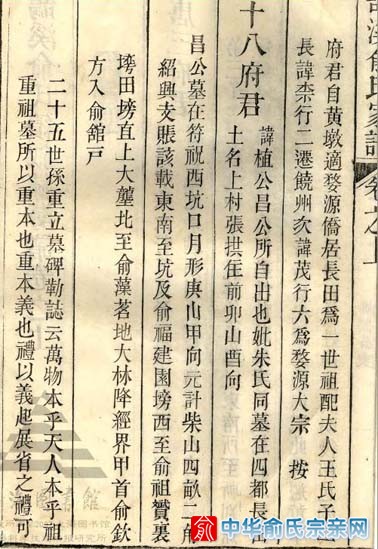 溪俞氏家譜 卷之上
府君自黃墩適婺源僑居長田爲一世祖配夫人王氏子
長諱柰行二遷饒州次諱茂行六爲婺源大宗 按
十八府君
諱植公昌公所自出也妣朱氏同墓在四都長田
土名上村張拱年前卯山酉向
昌公墓在符祝西坑口月形庚山甲向元計柴山四畝二角
紹興支賬該載東南至坑及俞福建園塝西至俞祖贇裏
塝田塝直上大壟北至俞藻茗地大林降經界甲首俞欽
方入俞館戶
二十五世孫重立墓碑勒誌云萬物本乎天人本乎祖
重祖墓所以重本也重本義也禮以義起展省之禮可
俞 中华俞氏宗亲网